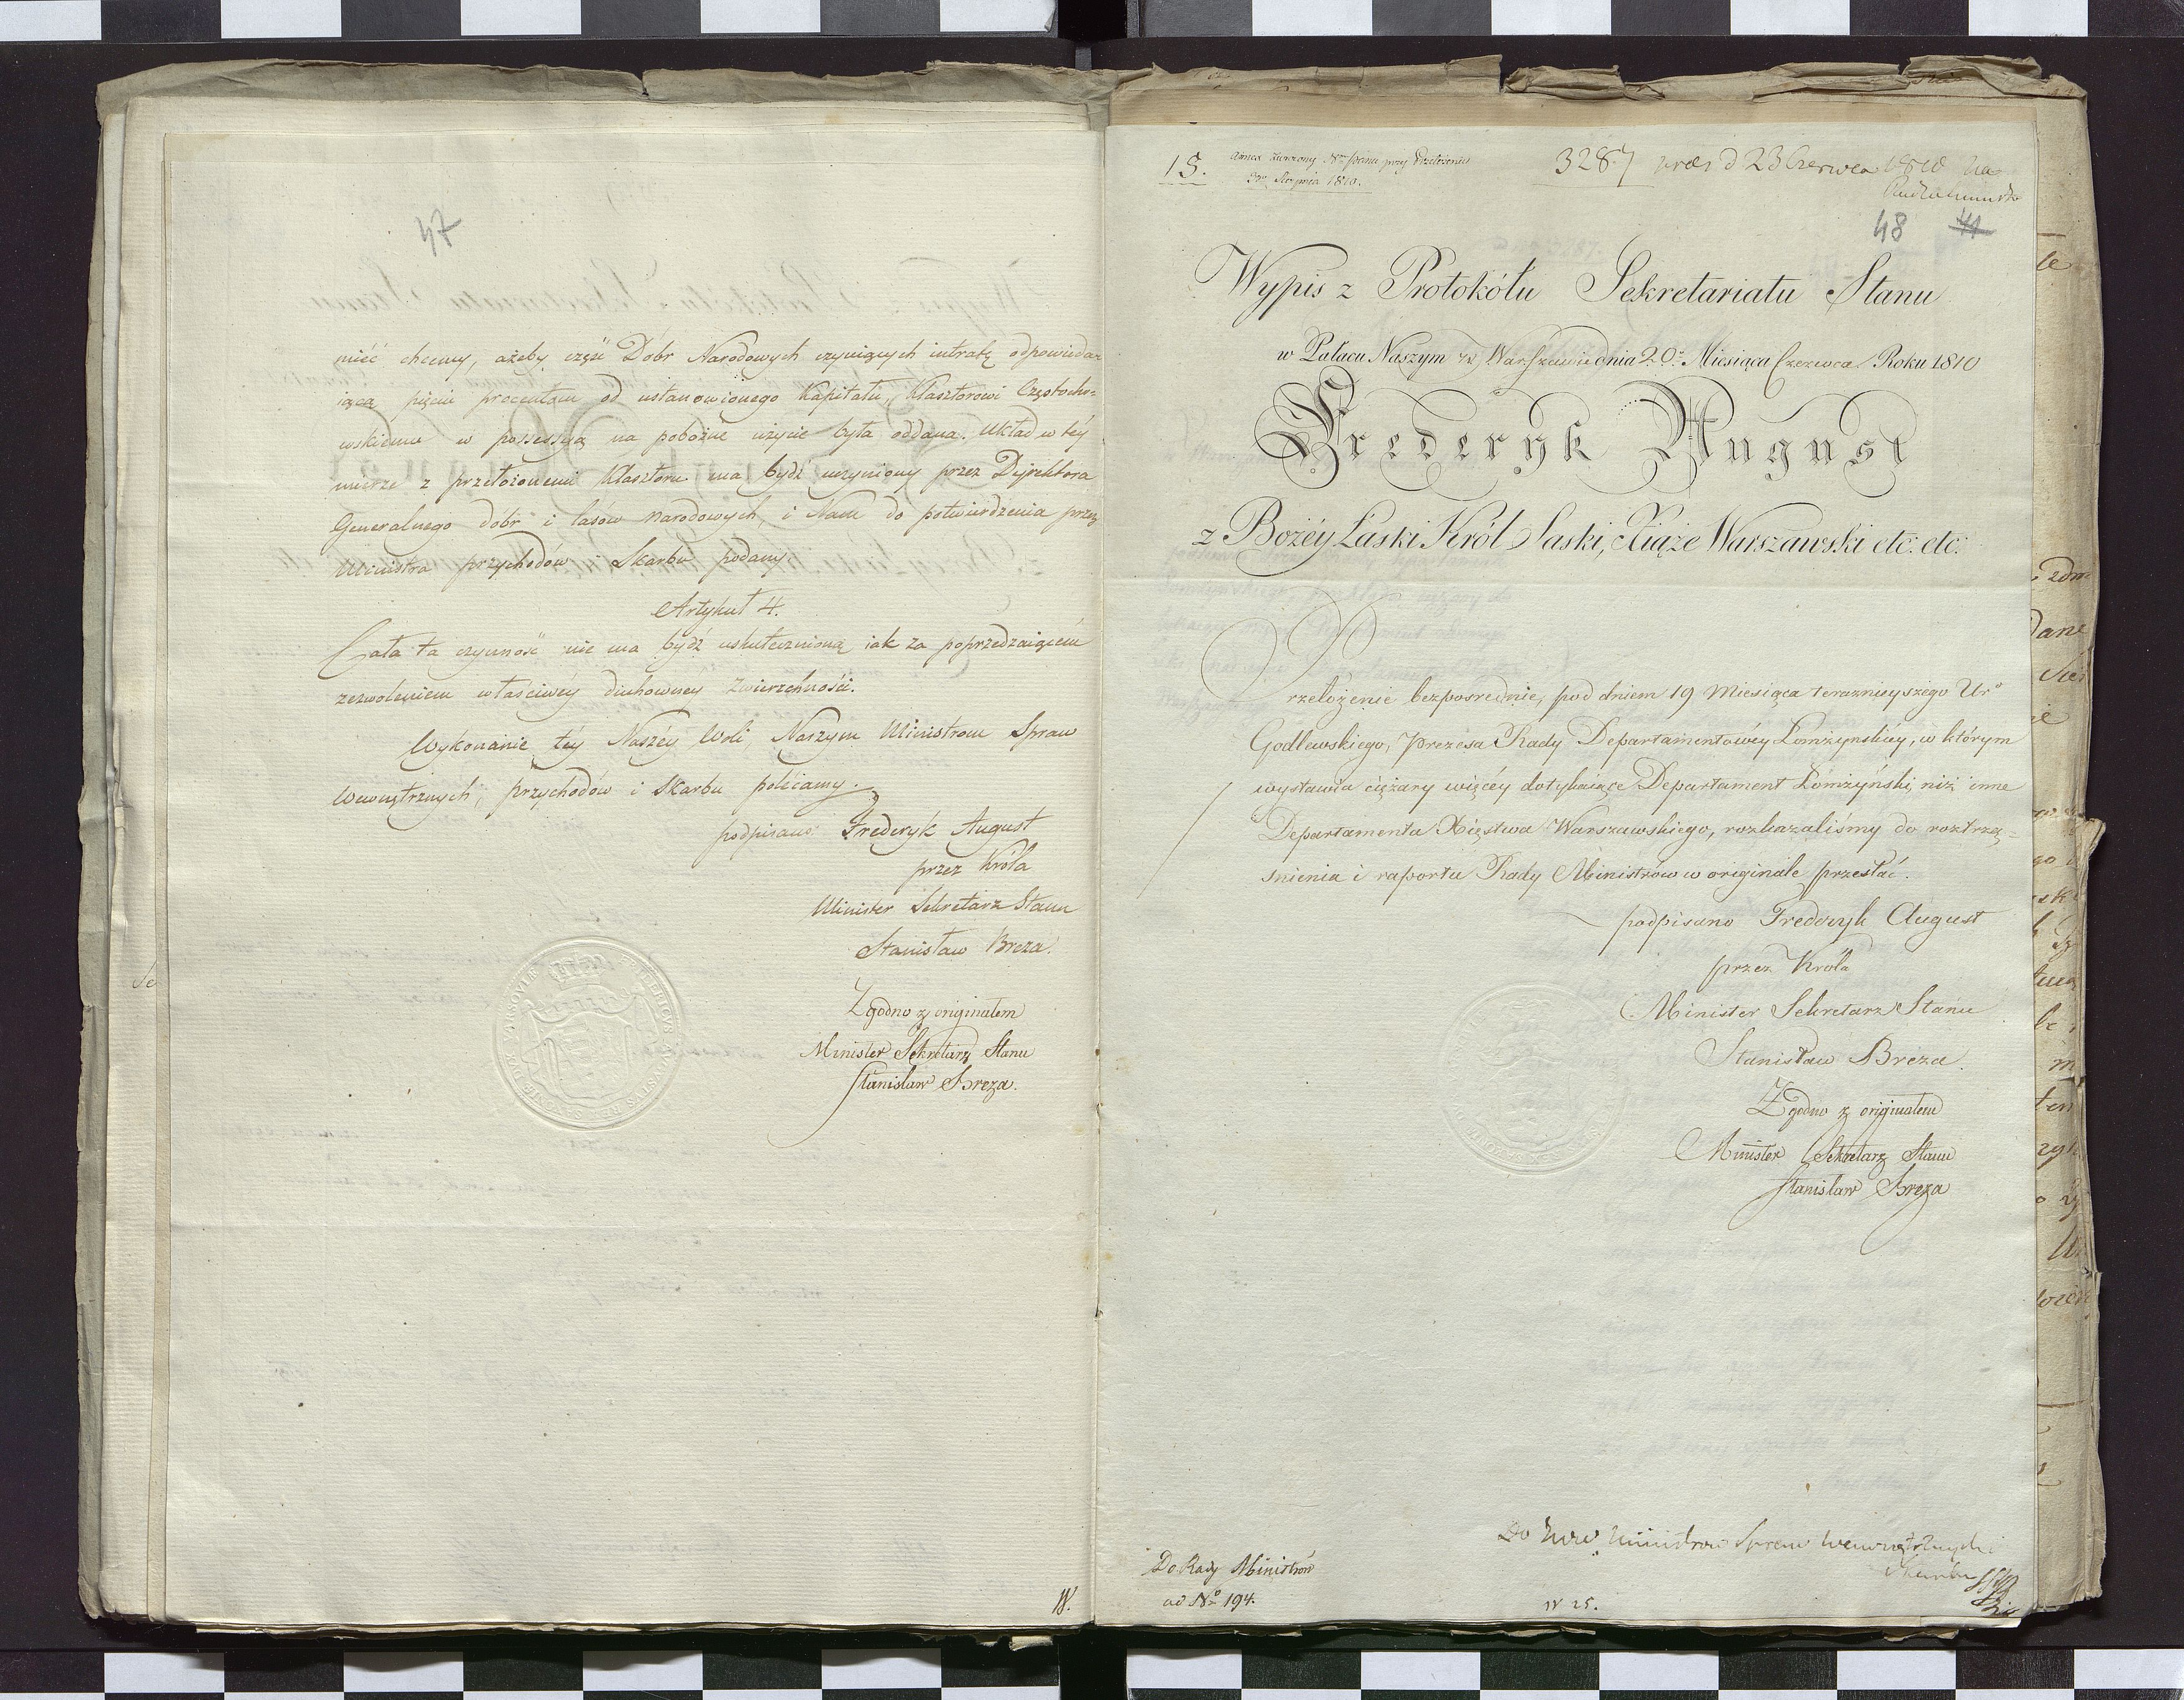 47
mieć chcemy, ażeby część Dóbr Narodowych czyniących intratę odpowiedaz
iącą pięciu procentom od ustanowionego Kapitału, Klasztorowi Częstocho=
wskiemu w possessyą na pobożne użycie była oddana. Układ w téy
mierze z przełożonemi Klasztoru ma bydź uczyniony przez Dyrektora
Generalnego dóbr i lasów narodowych, i Nam do potwierdzenia przez
Ministra przychodów i Skarbu podany.
Artykuł 4.
Cała ta czynność nie ma bydź uskutecznioną iak za poprzedzaiącém
zezwoleniem właściwéy duchownéy Zwierzchności.
Wykonanie téy Naszéy Woli, Naszym Ministrom Spraw
Wewnętrznych, przychodów i Skarbu polécamy.
podpisano Frederyk August
przez Króla
Minister Sekretarz Stanu
Stanisław Breza.
Zgodno z originałem
Minister Sekretarz Stanu
Stanisław Breza.
W.
15.
3287 praes d 23 Czerwca 1810 na
48 44
Sierpnia 1810.
Wypis z Protokółu Sekretariatu Stanu
w Pałacu Naszym w Warszawie dnia 20. Miesiąca Czerwca Roku 1810
Frederyk August
z Bożéy Łaski Król Saski, Xiąże Warszawski etc: etc:
Przełożenie bezpośrednie, pod dniem 19 Miesiąca teraznieyszego Ur°
Godlewskiego, Prezesa Rady Departamentowéy Łomżyńskiey, w którym
wystawia ciężary więcéy dotykaiące Departament Łomżyński, niż inne
Departamenta Xięstwa Warszawskiego, rozkazaliśmy do roztrzą=
śnienia i raportu Rady Ministrów w originale przesłać.
podpisano Frederyk August
przez Króla
Minister Sekretarz Stanu
Stanisław Breza.
Zgodno z originałem
Minister Sekretarz Stanu
Stanisław Breza
Do Ministrów Spraw Wewnętrznych i
Skarbu
Do Rady Ministrów
ad No 194.
W 25.